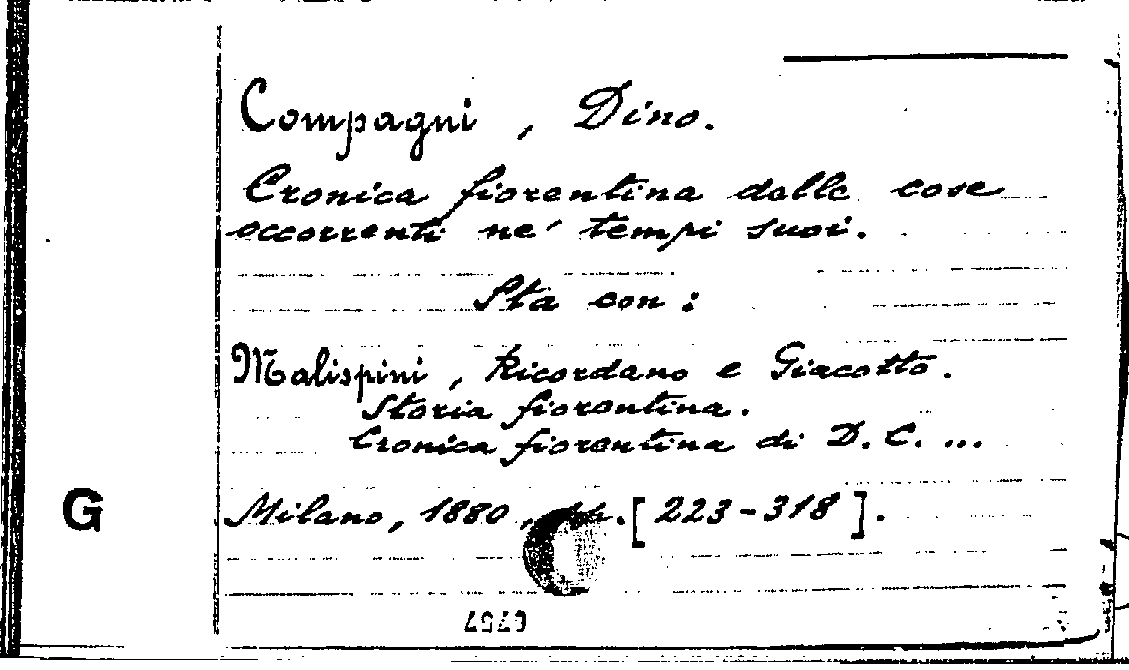 Compagni, Dino.
Cronica fiorentina delle cose
occorrenti ne' tempi suoi.
Sta con:
Malispini, Ricordano e Giacotto.
Storia fiorentina.
Cronica fiorentina di D. C. ...
G
Milano, 1880, pp. [223-318].